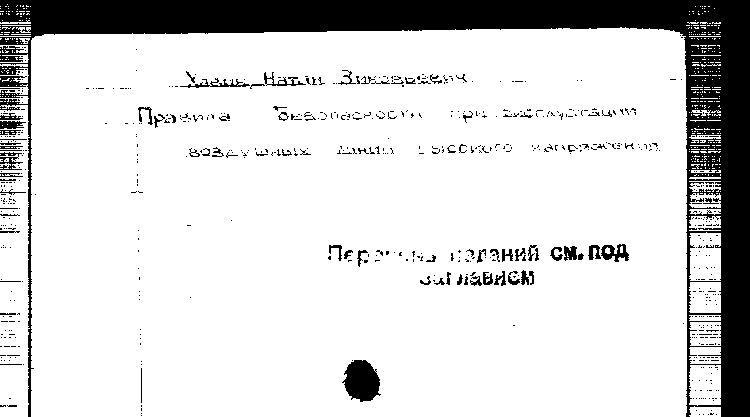 Натан Зиновьевич
Правила безопасности при эксплуатации
воздушных линий высокого напряжения
Перечень изданий см. под
заглавием